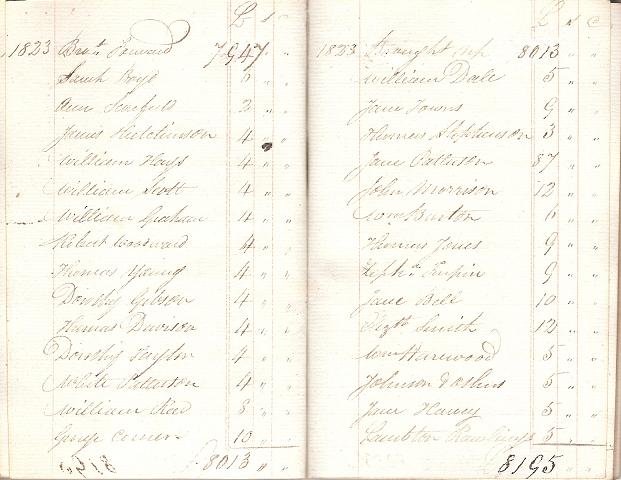 £ s
1823 Brot Forward 7947 " "
Sarah Boyd 6 " "
Ann 2 " "
James Hutchinson 4 " "
William Hays 4 " "
William Scott 4 " "
William Graham 4 " "
Robert Woodward 4 " "
Thomas Young 4 " "
Dorothy Gibson 4 " "
Hannah Davison 4 " "
Dorothy Taylor 4 " "
White Patterson 4 " "
William Reed 8 " "
George 10 " "
8013 " "
£ s
1823 Brought up 8013 " "
William Dale 5 " "
Jane Towns 9 " "
Thomas Stephenson 3 " "
Jane Patterson 87 " "
John Morrison 12 " "
Wm Burton 6 " "
Thomas Jones 9 " "
9 " "
Jane Bell 10 " "
Elizth Smith 12 " "
Wm Harwood 5 " "
Johnson & others 5 " "
Jane Harvey 5 " "
Lambton Rawlings 5 " "
8195 " "